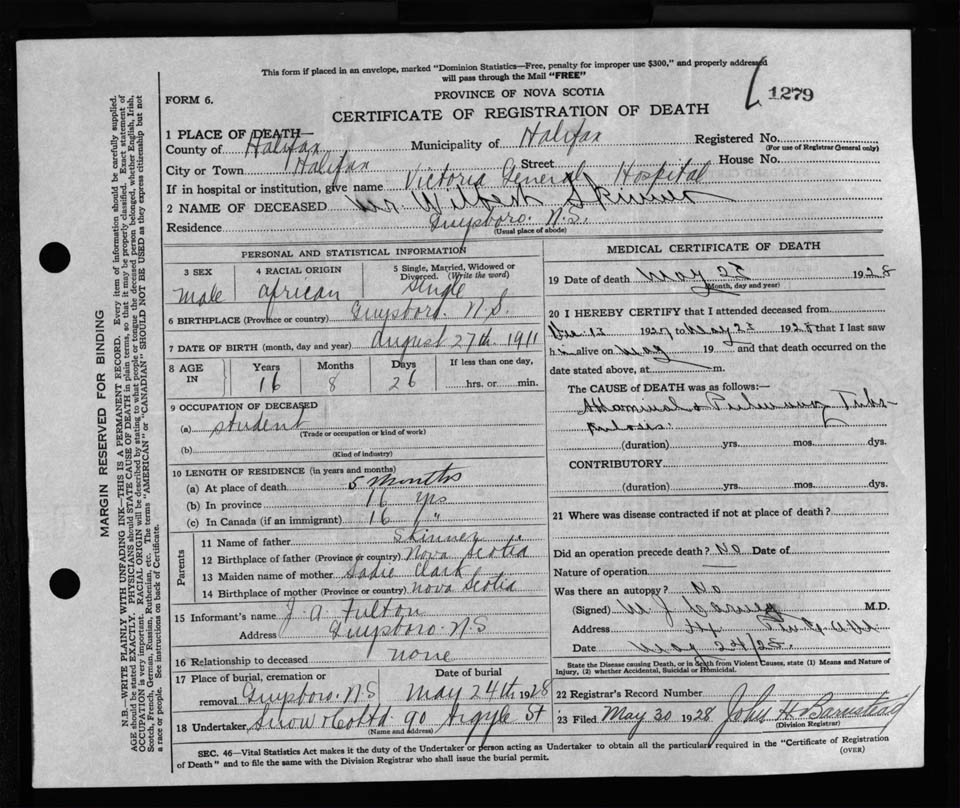 This form if placed in an envelope, marked "Dominion Statistics—Free, penalty for improper use $300," and properly addressed
will pass through the Mail "FREE"
PROVINCE OF NOVA SCOTIA
1279
FORM 6.
CERTIFICATE OF REGISTRATION OF DEATH
1 PLACE OF DEATH—
County of Halifax Municipality of Halifax Registered No.
(For use of Registrar General only)
City or Town Halifax Street House No.
If in hospital or institution, give name Victoria General Hospital
2 NAME OF DECEASED Mr. Wilbert Skinner
Residence Guysboro. N.S.
(Usual place of abode)
PERSONAL AND STATISTICAL INFORMATION
3 SEX 4 RACIAL ORIGIN 5 Single, Married, Widowed or
Divorced. (Write the word)
male african single
6 BIRTHPLACE (Province or country) Guysboro. N.S.
7 DATE OF BIRTH (month, day and year) August 27th. 1911
8 AGE IN Years Months Days If less than one day,
16 8 26 hrs. or min.
9 OCCUPATION OF DECEASED
(a) student
(Trade or occupation or kind of work)
(b)
(Kind of industry)
10 LENGTH OF RESIDENCE (in years and months)
(a) At place of death 5 months
(b) In province 16 yrs
(c) In Canada (if an immigrant) 16 "
Parents
11 Name of father Skinner
12 Birthplace of father (Province or country) Nova Scotia
13 Maiden name of mother Sadie Clark
14 Birthplace of mother (Province or country) Nova Scotia
15 Informant's name J. A. Fulton
Address Guysboro. N S
16 Relationship to deceased none
17 Place of burial, cremation or Date of burial
removal Guysboro. N.S May 24th 1928
18 Undertaker Snow & Co Ltd. 90 Argyle St
(Name and address)
MEDICAL CERTIFICATE OF DEATH
19 Date of death May 23 1928
(Month, day and year)
20 I HEREBY CERTIFY that I attended deceased from
Dec. 12 1927 to May 23 1928 that I last saw
him alive on May 19 and that death occurred on the
date stated above, at m.
The CAUSE of DEATH was as follows:—
Abdominal & Pulmonary Tuber-
culosis.
(duration) yrs. mos. dys.
CONTRIBUTORY
(duration) yrs. mos. dys.
21 Where was disease contracted if not at place of death?
Did an operation precede death? No Date of
Nature of operation —
Was there an autopsy? No
(Signed) W. J. M.D.
Address
Date May 24/28.
State the Disease causing Death, or in death from Violent Causes, state (1) Means and Nature of
Injury, (2) whether Accidental, Suicidal or Homicidal.
22 Registrar's Record Number
23 Filed May 30 1928 John H. Barnstead
(Division Registrar)
SEC. 46—Vital Statistics Act makes it the duty of the Undertaker or person acting as Undertaker to obtain all the particulars required in the "Certificate of Registration
of Death" and to file the same with the Division Registrar who shall issue the burial permit.
(OVER)
MARGIN RESERVED FOR BINDING
N.B.—WRITE PLAINLY WITH UNFADING INK—THIS IS A PERMANENT RECORD. Every item of information should be carefully supplied.
AGE should be stated EXACTLY. PHYSICIANS should STATE CAUSE OF DEATH in plain terms, so that it may be properly classified. Exact statement of
OCCUPATION is very important. RACIAL ORIGIN will be described by stating to what people or tongue the deceased person belonged, whether English, Irish,
Scotch, French, German, Russian, Ruthenian, etc. The terms "AMERICAN" or "CANADIAN" SHOULD NOT BE USED as they express citizenship but not
a race or people. See instructions on back of Certificate.